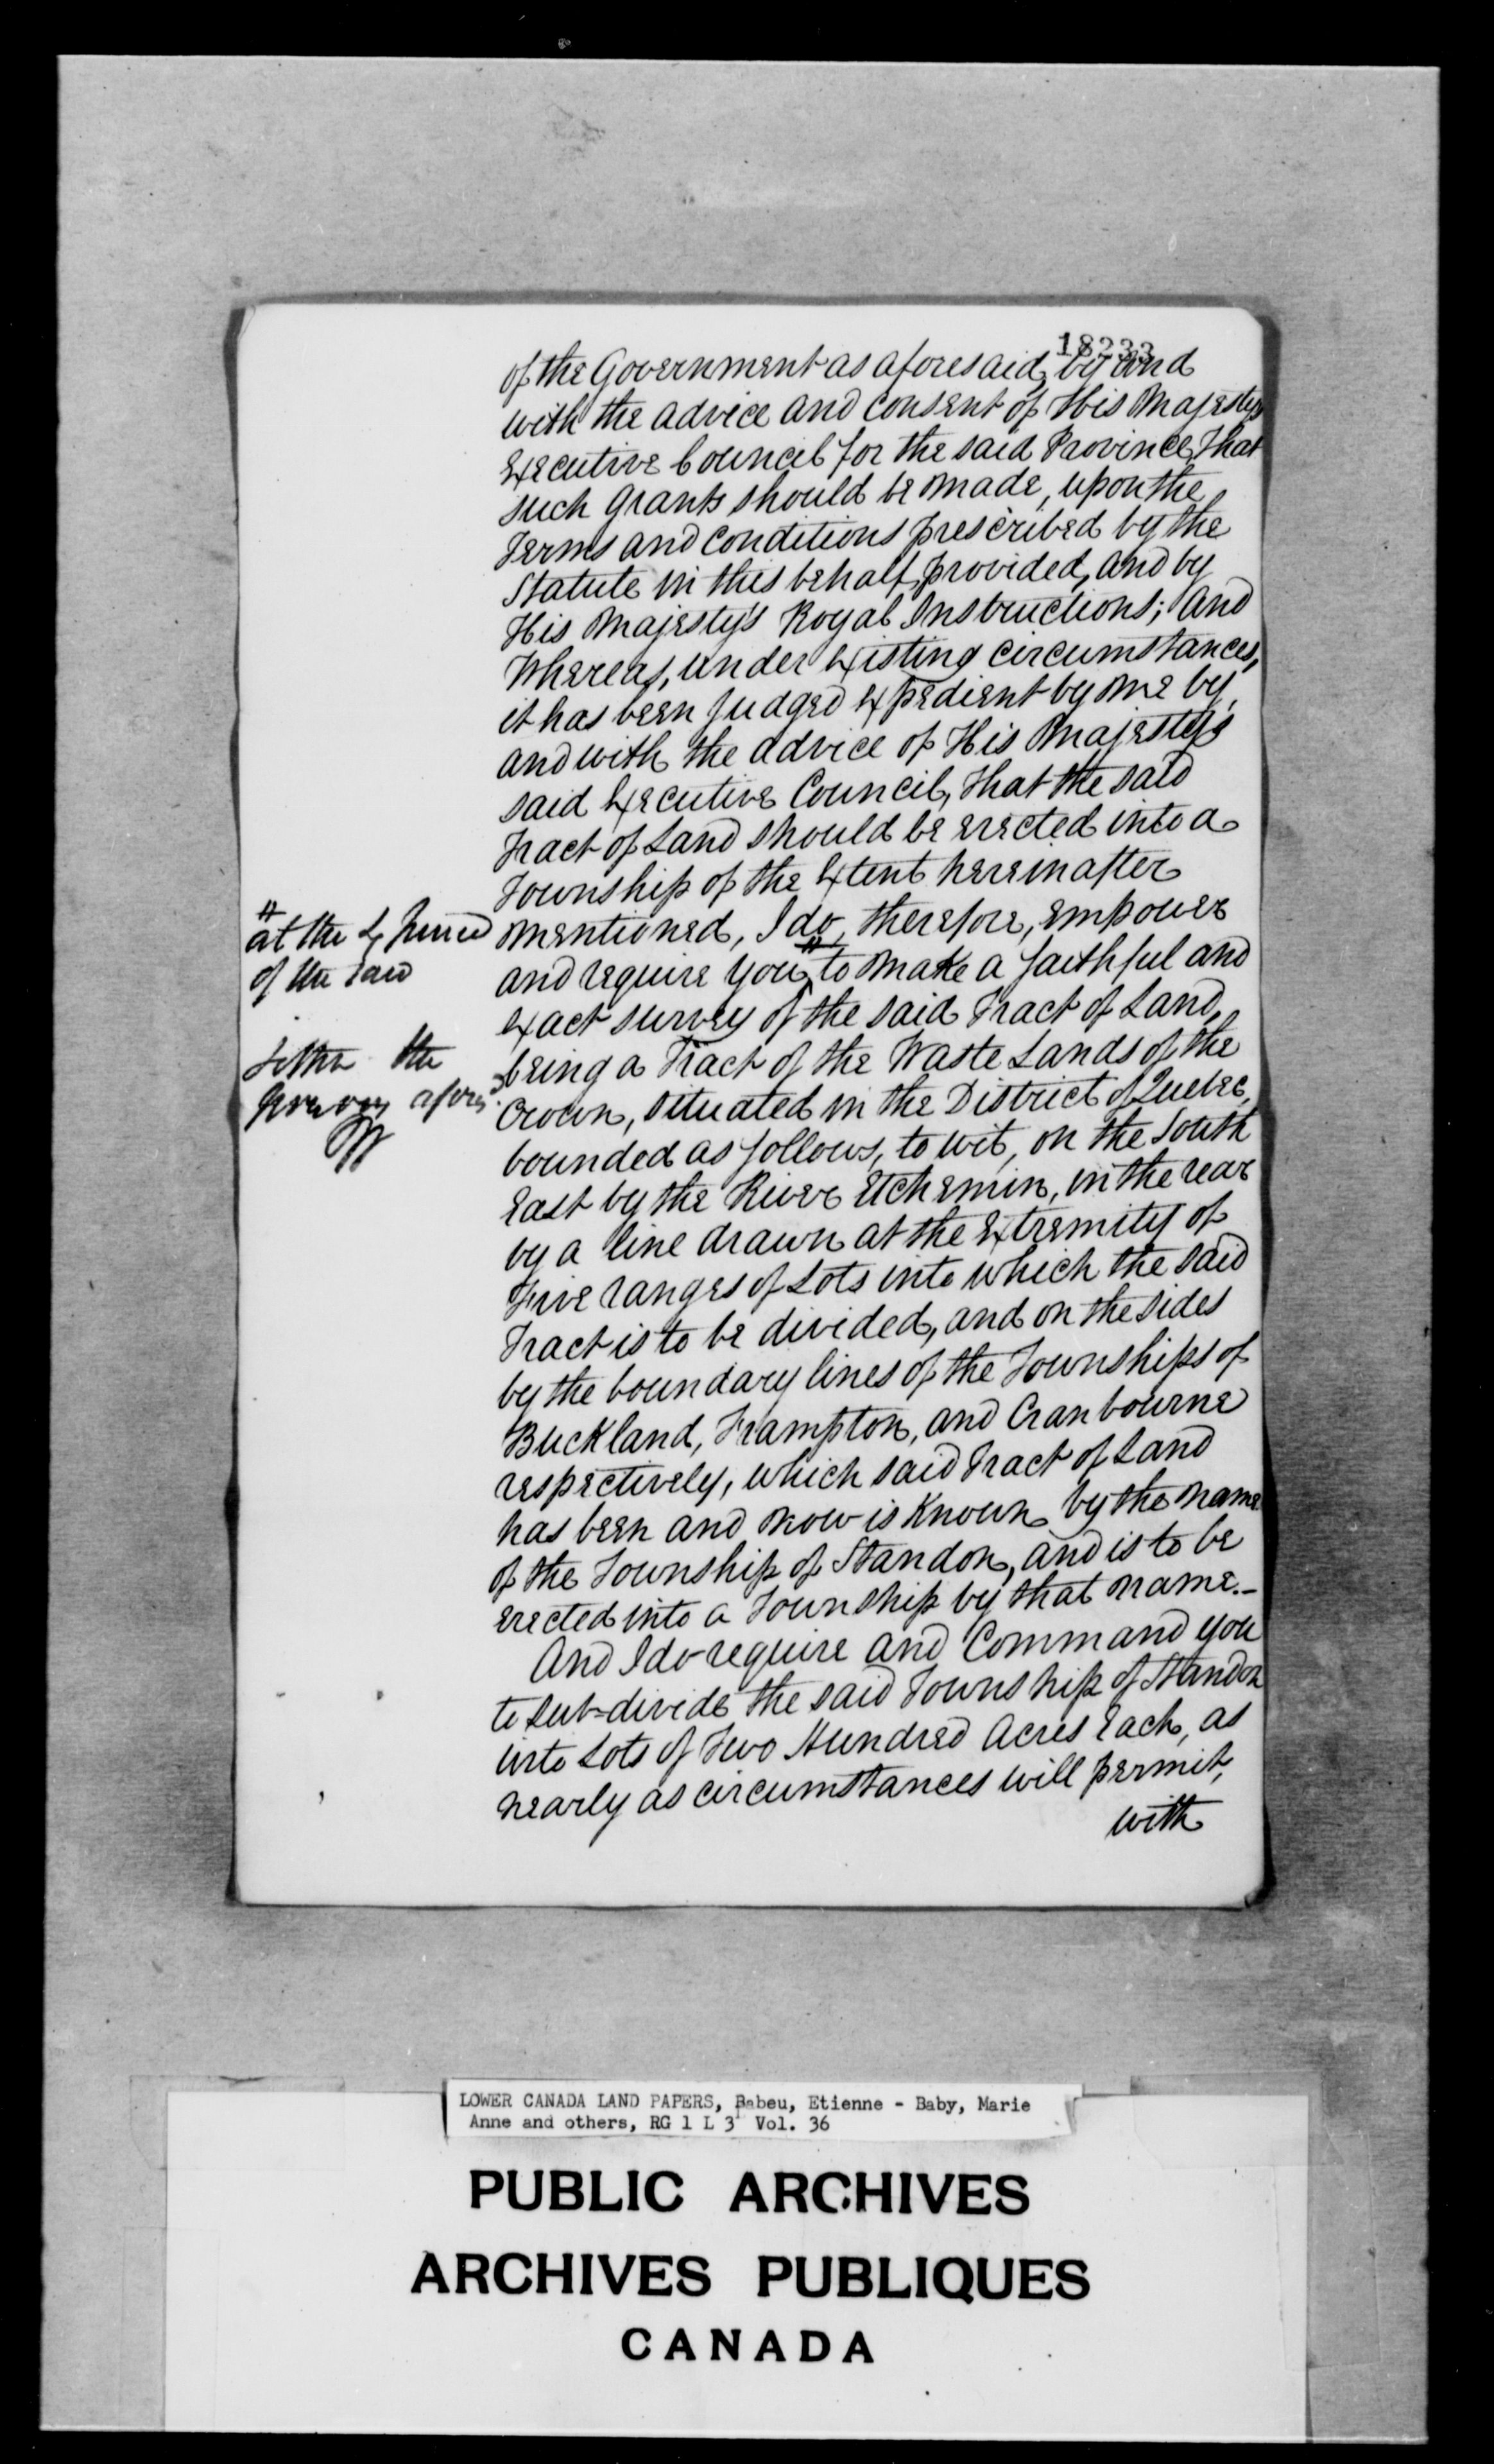 18233
of the Government as aforesaid, by and
with the advice and consent of His Majesty's
Executive Council for the said Province, that
such grants should be made, upon the
Terms and Conditions prescribed by the
Statute in this behalf provided, and by
His Majesty's Royal Instructions; And
Whereas, under existing circumstances,
it has been judged expedient by me by,
and with the advice of His Majesty's
said Executive Council, that the said
Tract of Land should be erected into a
Township of the Extent hereinafter
mentioned, I do, therefore, empower
and require you, # to make a faithful and
exact survey of the said Tract of Land,
being a Tract of the Waste Lands of the
Crown, situated in the District of Quebec,
bounded as follows, to wit, on the South
East by the River Etchemin, in the rear
by a line drawn at the Extremity of
Five ranges of Lots into which the said
Tract is to be divided, and on the sides
by the boundary lines of the Townships of
Buckland, Frampton, and Cranbourne
respectively, which said Tract of Land
has been and now is Known by the name
of the Township of Standon, and is to be
erected into a Township by that name.-
And I do require and Command you
to sub=divide the said Township of Standon
into Lots of Two Hundred Acres Each, as
nearly as circumstances will permit,
with
#
at the
of the said
the
LOWER CANADA LAND PAPERS, Babeu, Etienne - Baby, Marie
Anne and others, RG 1 L 3 Vol. 36
PUBLIC ARCHIVES
ARCHIVES PUBLIQUES
CANADA